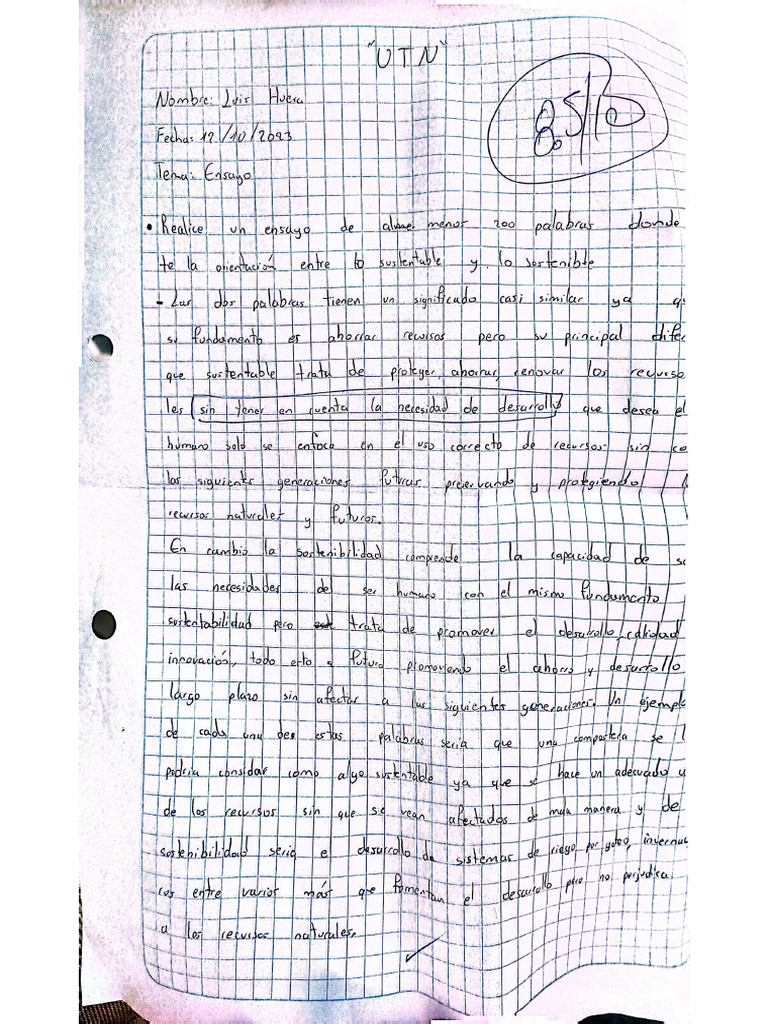 "UTN"
8.5/10
Nombre: Luis Huera
Fecha: 12/10/2023
Tema: Ensayo
• Realice un ensayo de menos 200 palabras donde
te la orientación entre lo sustentable y lo sostenible
- Las dos palabras tienen un significado casi similar ya q
su fundamento es ahorrar recursos pero su principal difer
que sustentable trata de proteger, ahorrar, renovar los recurso
les sin tener en cuenta la necesidad de desarrollo que desea el
humano solo se enfoca en el uso correcto de recursos sin co
las siguientes generaciones futuras preservando y protegiendo l
recursos naturales y futuros.
En cambio la sostenibilidad comprende la capacidad de sa
las necesidades de ser humano con el mismo fundamento
sustentabilidad pero trata de promover el desarrollo, calidad
innovación, todo esto a futuro promoviendo el ahorro y desarrollo
largo plazo sin afectar a las siguientes generaciones. Un ejemplo
de cada una des estas palabras seria que una compostera se l
podria considar como algo sustentable ya que se hace un adecuado u
de los recursos sin que se vean afectados de mala manera y de
sostenibilidad seria e desarrollo de sistemas de riego por goteo, inverna
cos entre varios más que fomentan el desarrollo pero no perjudica
a los recursos naturales.